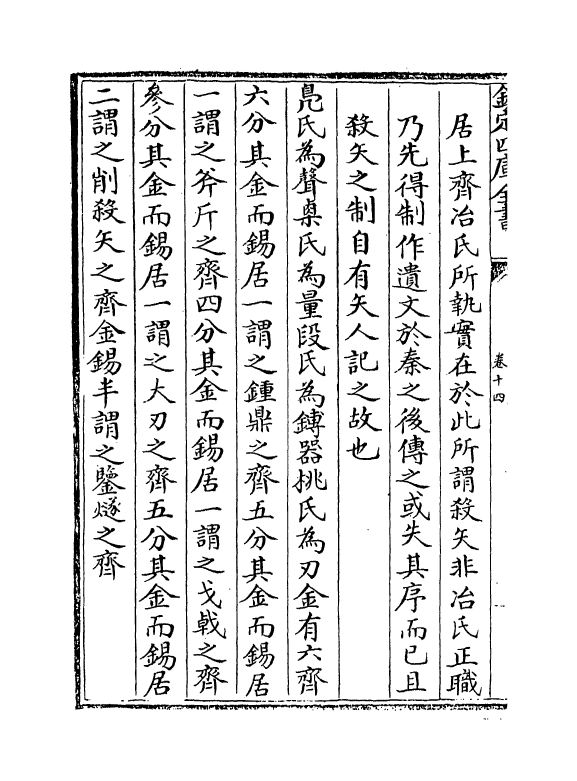 欽定四庫全書
卷十四
居上齊冶氏所執實在於此所謂殺矢非冶氏正職
乃先得制作遺文於秦之後傳之或失其序而已且
殺矢之制自有矢人記之故也
鳧氏為聲㮚氏為量段氏為鎛器挑氏為刃金有六齊
六分其金而錫居一謂之鍾鼎之齊五分其金而錫居
一謂之斧斤之齊四分其金而錫居一謂之戈戟之齊
參分其金而錫居一謂之大刃之齊五分其金而錫居
二謂之削殺矢之齊金錫半謂之鑒燧之齊